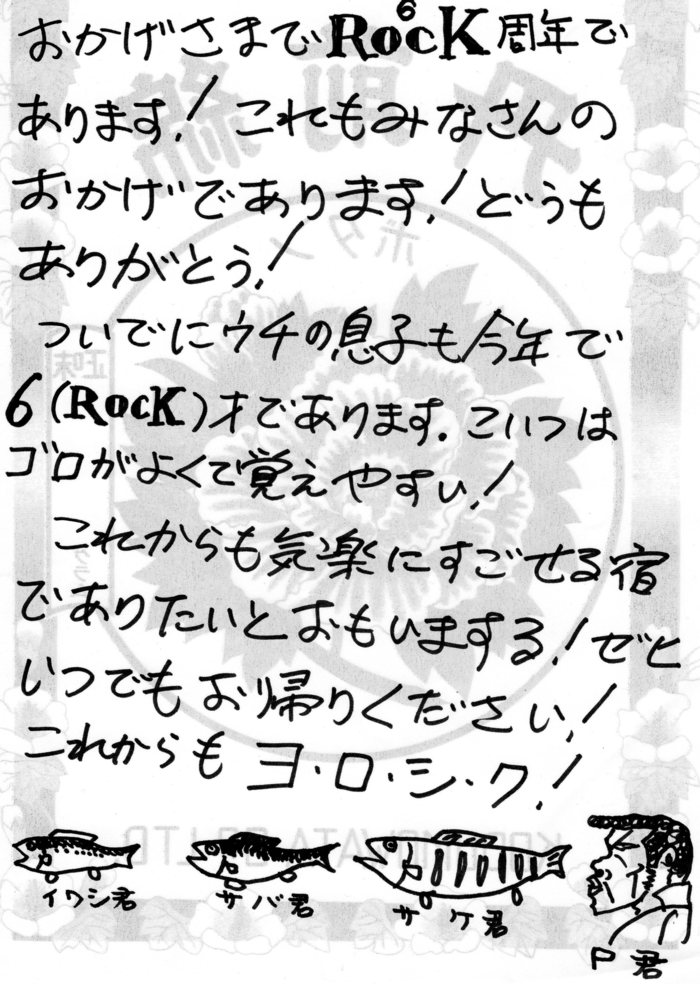 6
おかげさまでRocK周年で
あります! これもみなさんの
おかげであります! どうも
ありがとう!
ついでにウチの息子も今年で
6(RocK)才であります。こいつは
ゴロがよくて覚えやすい!
これからも気楽にすごせる宿
でありたいとおもいまする! ゼヒ
いつでもお帰りください!
これからもヨ・ロ・シ・ク!
イワシ君 サバ君 サケ君 P君
ボタン
正味